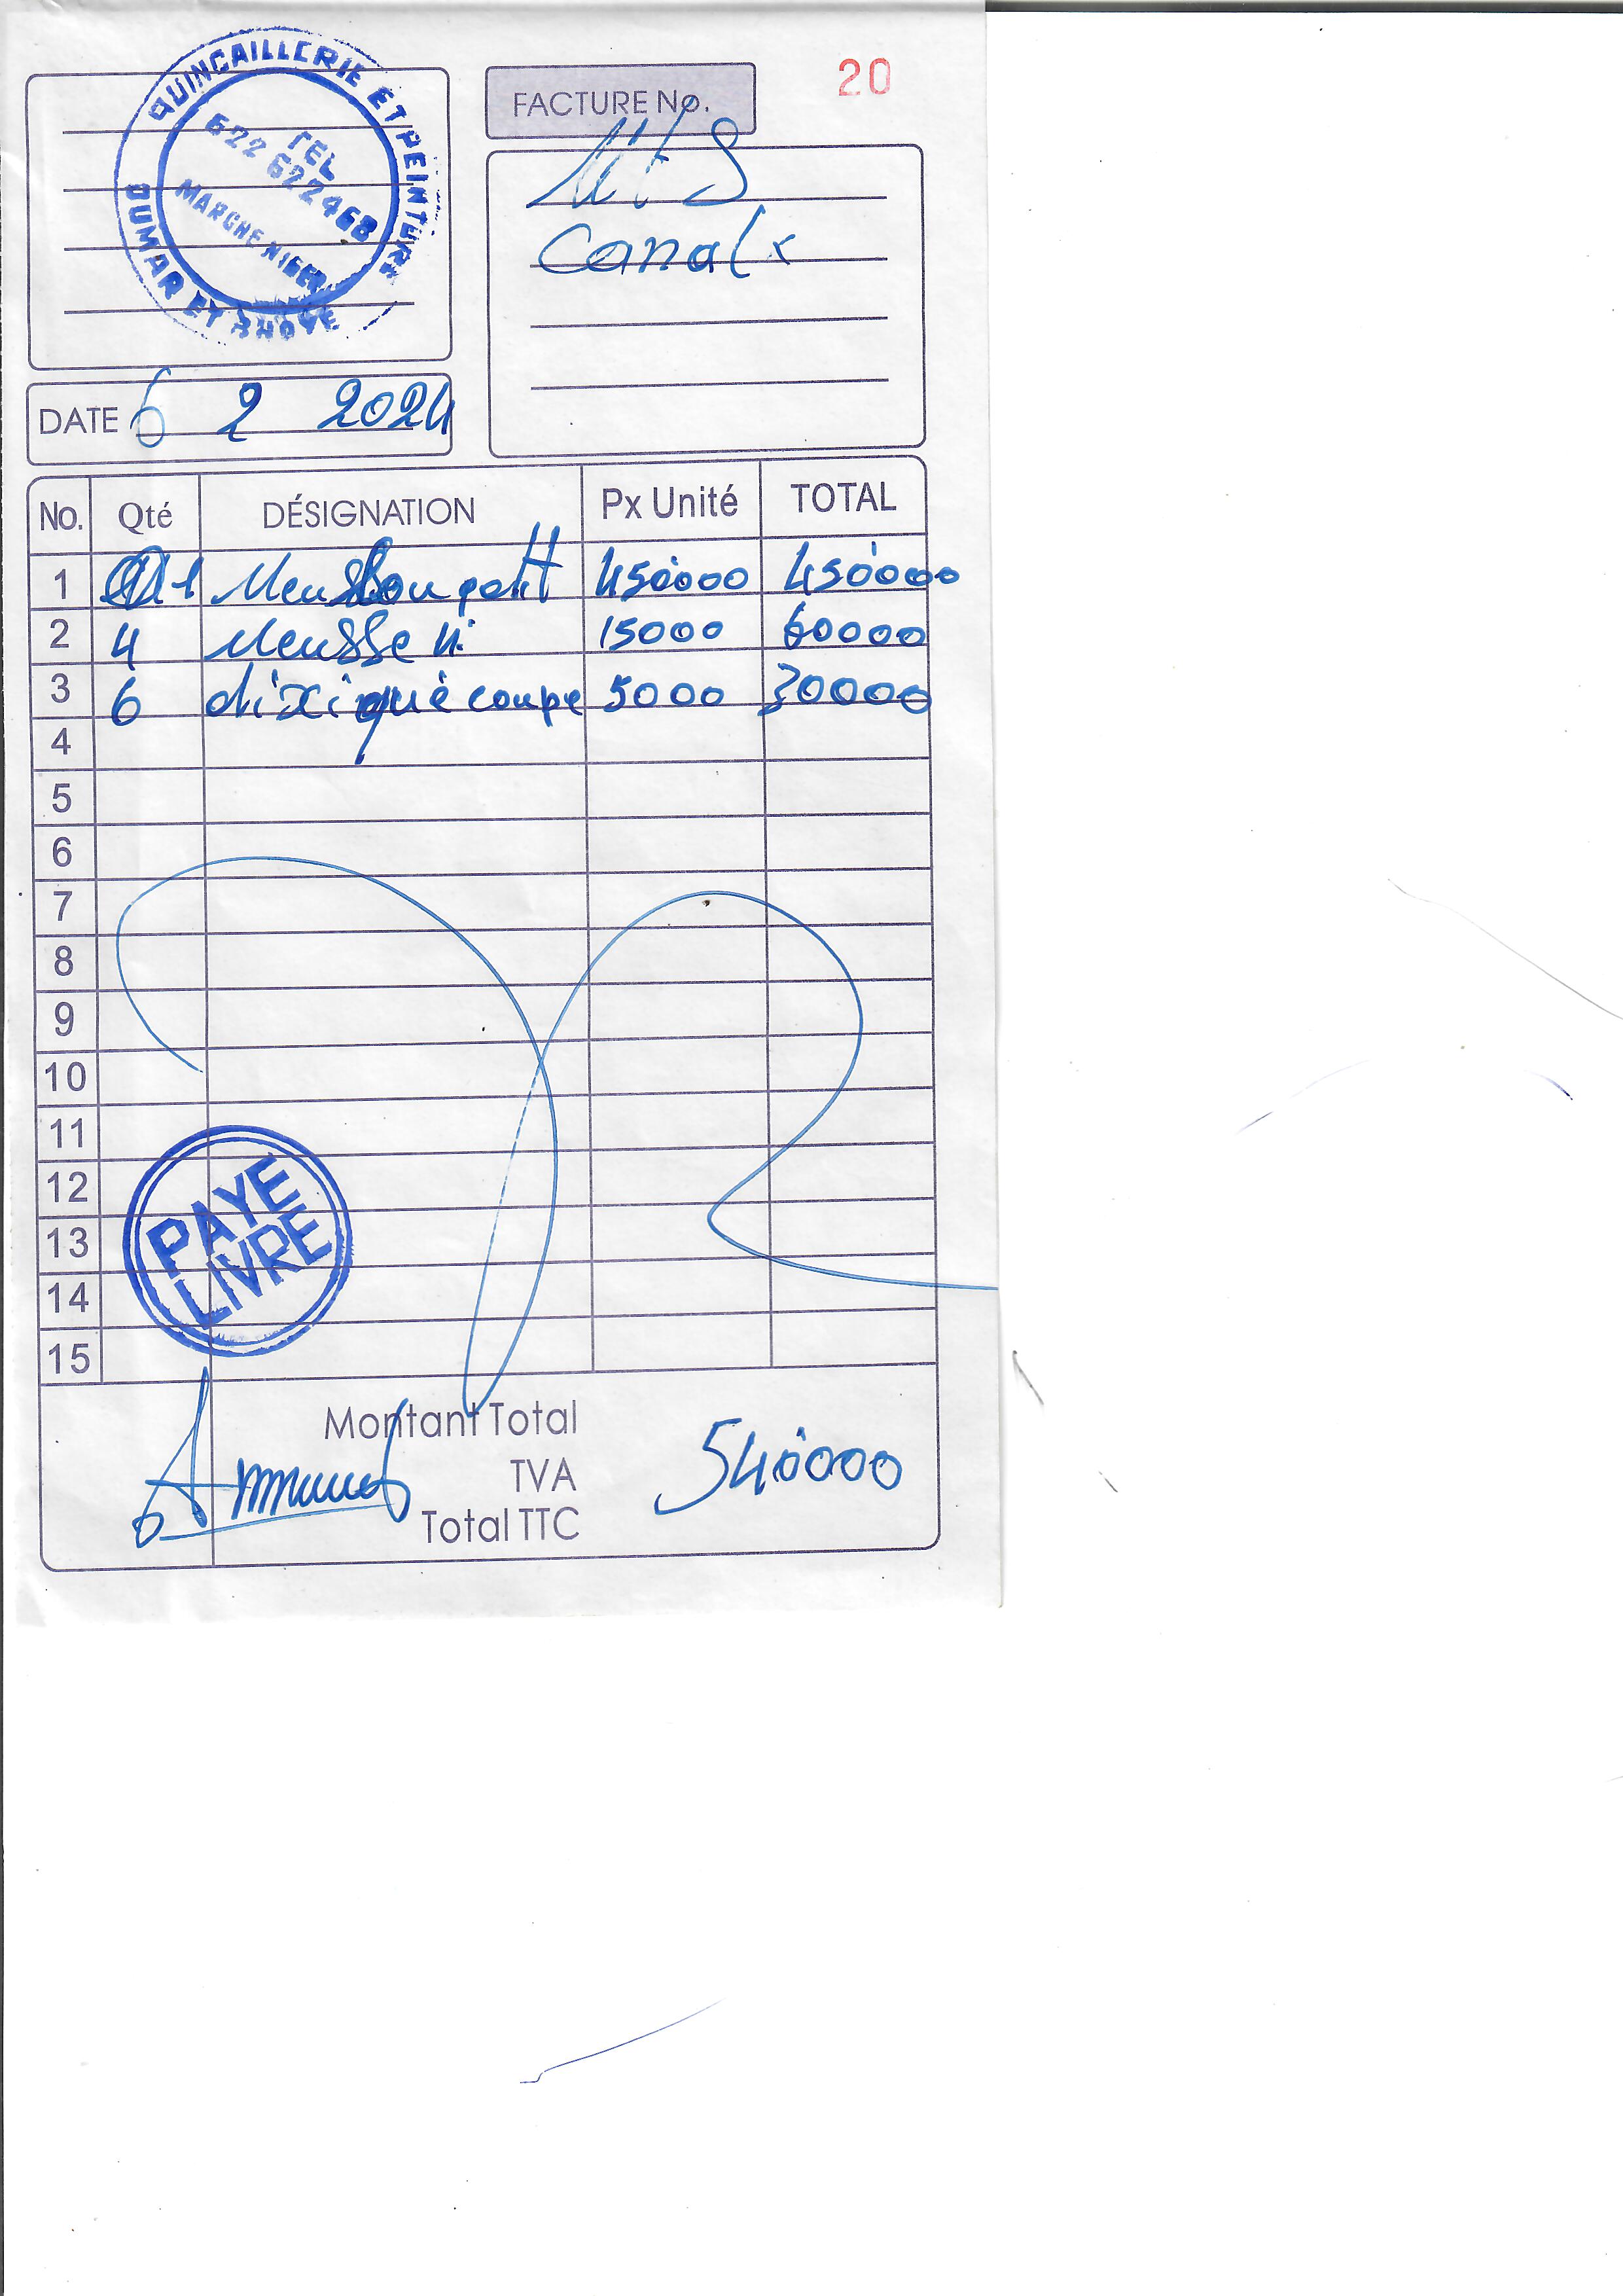 QUINCAILLERIE ET PEINTURE
TEL
622 622468
MARCHE NIGER
OUMAR ET
FACTURE No.
20
Canal
DATE 6 2 2024
No. Qté DÉSIGNATION Px Unité TOTAL
1 1 450000 450000
2 4 Meusse 15000 60000
3 6 coupe 5000 30000
4
5
6
7
8
9
10
11
12
13
14
15
PAYE
LIVRE
Montant Total
TVA 540000
Total TTC